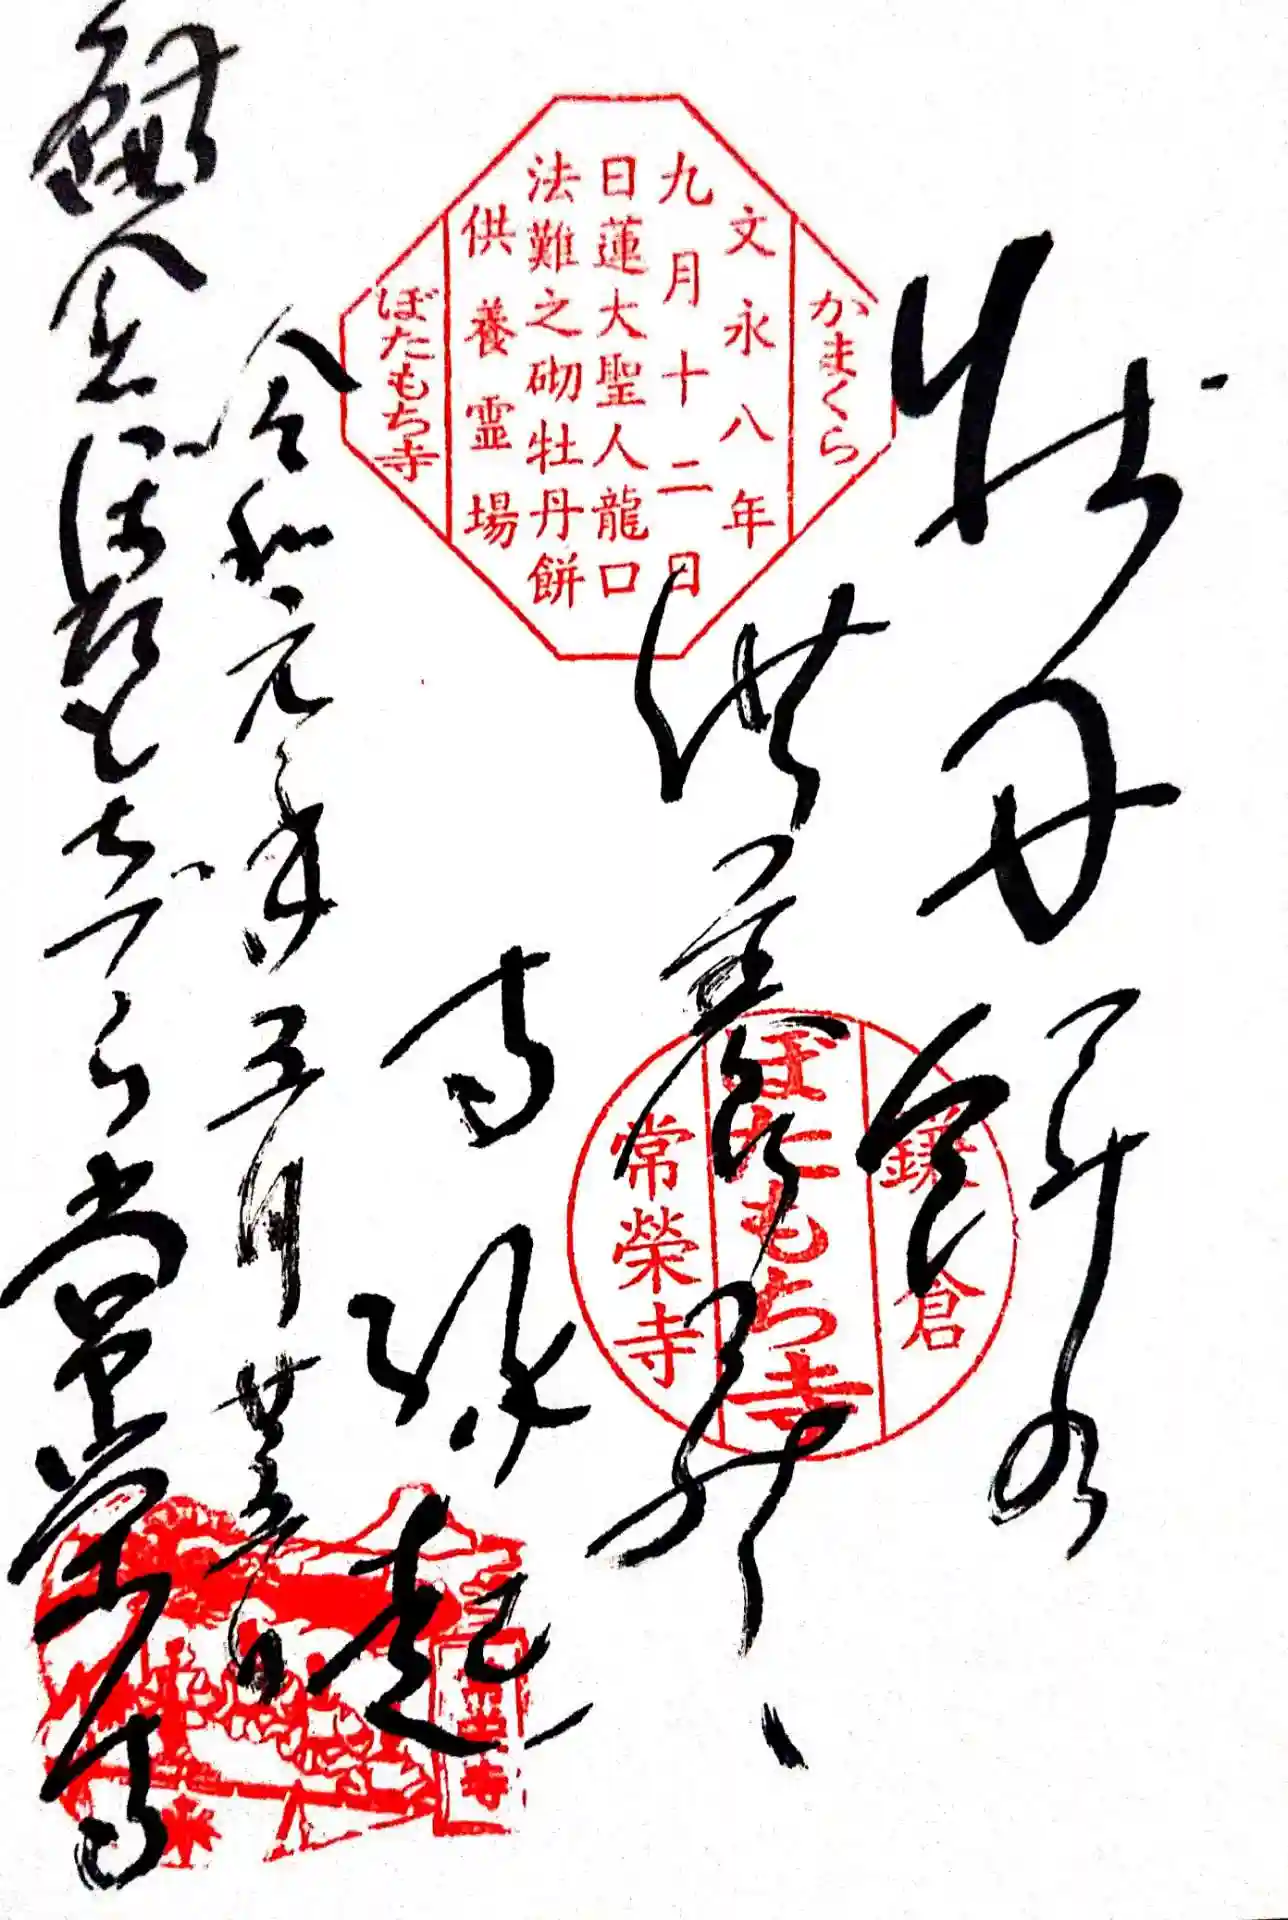 かまくら
文永八年
九月十二日
日蓮大聖人龍口
法難之砌牡丹餅
供養霊場
ぼたもち寺
牡丹餅
供養
寺縁起
令和元年五月廿五日
鎌倉
常榮寺
鎌倉
ぼたもち寺
常榮寺